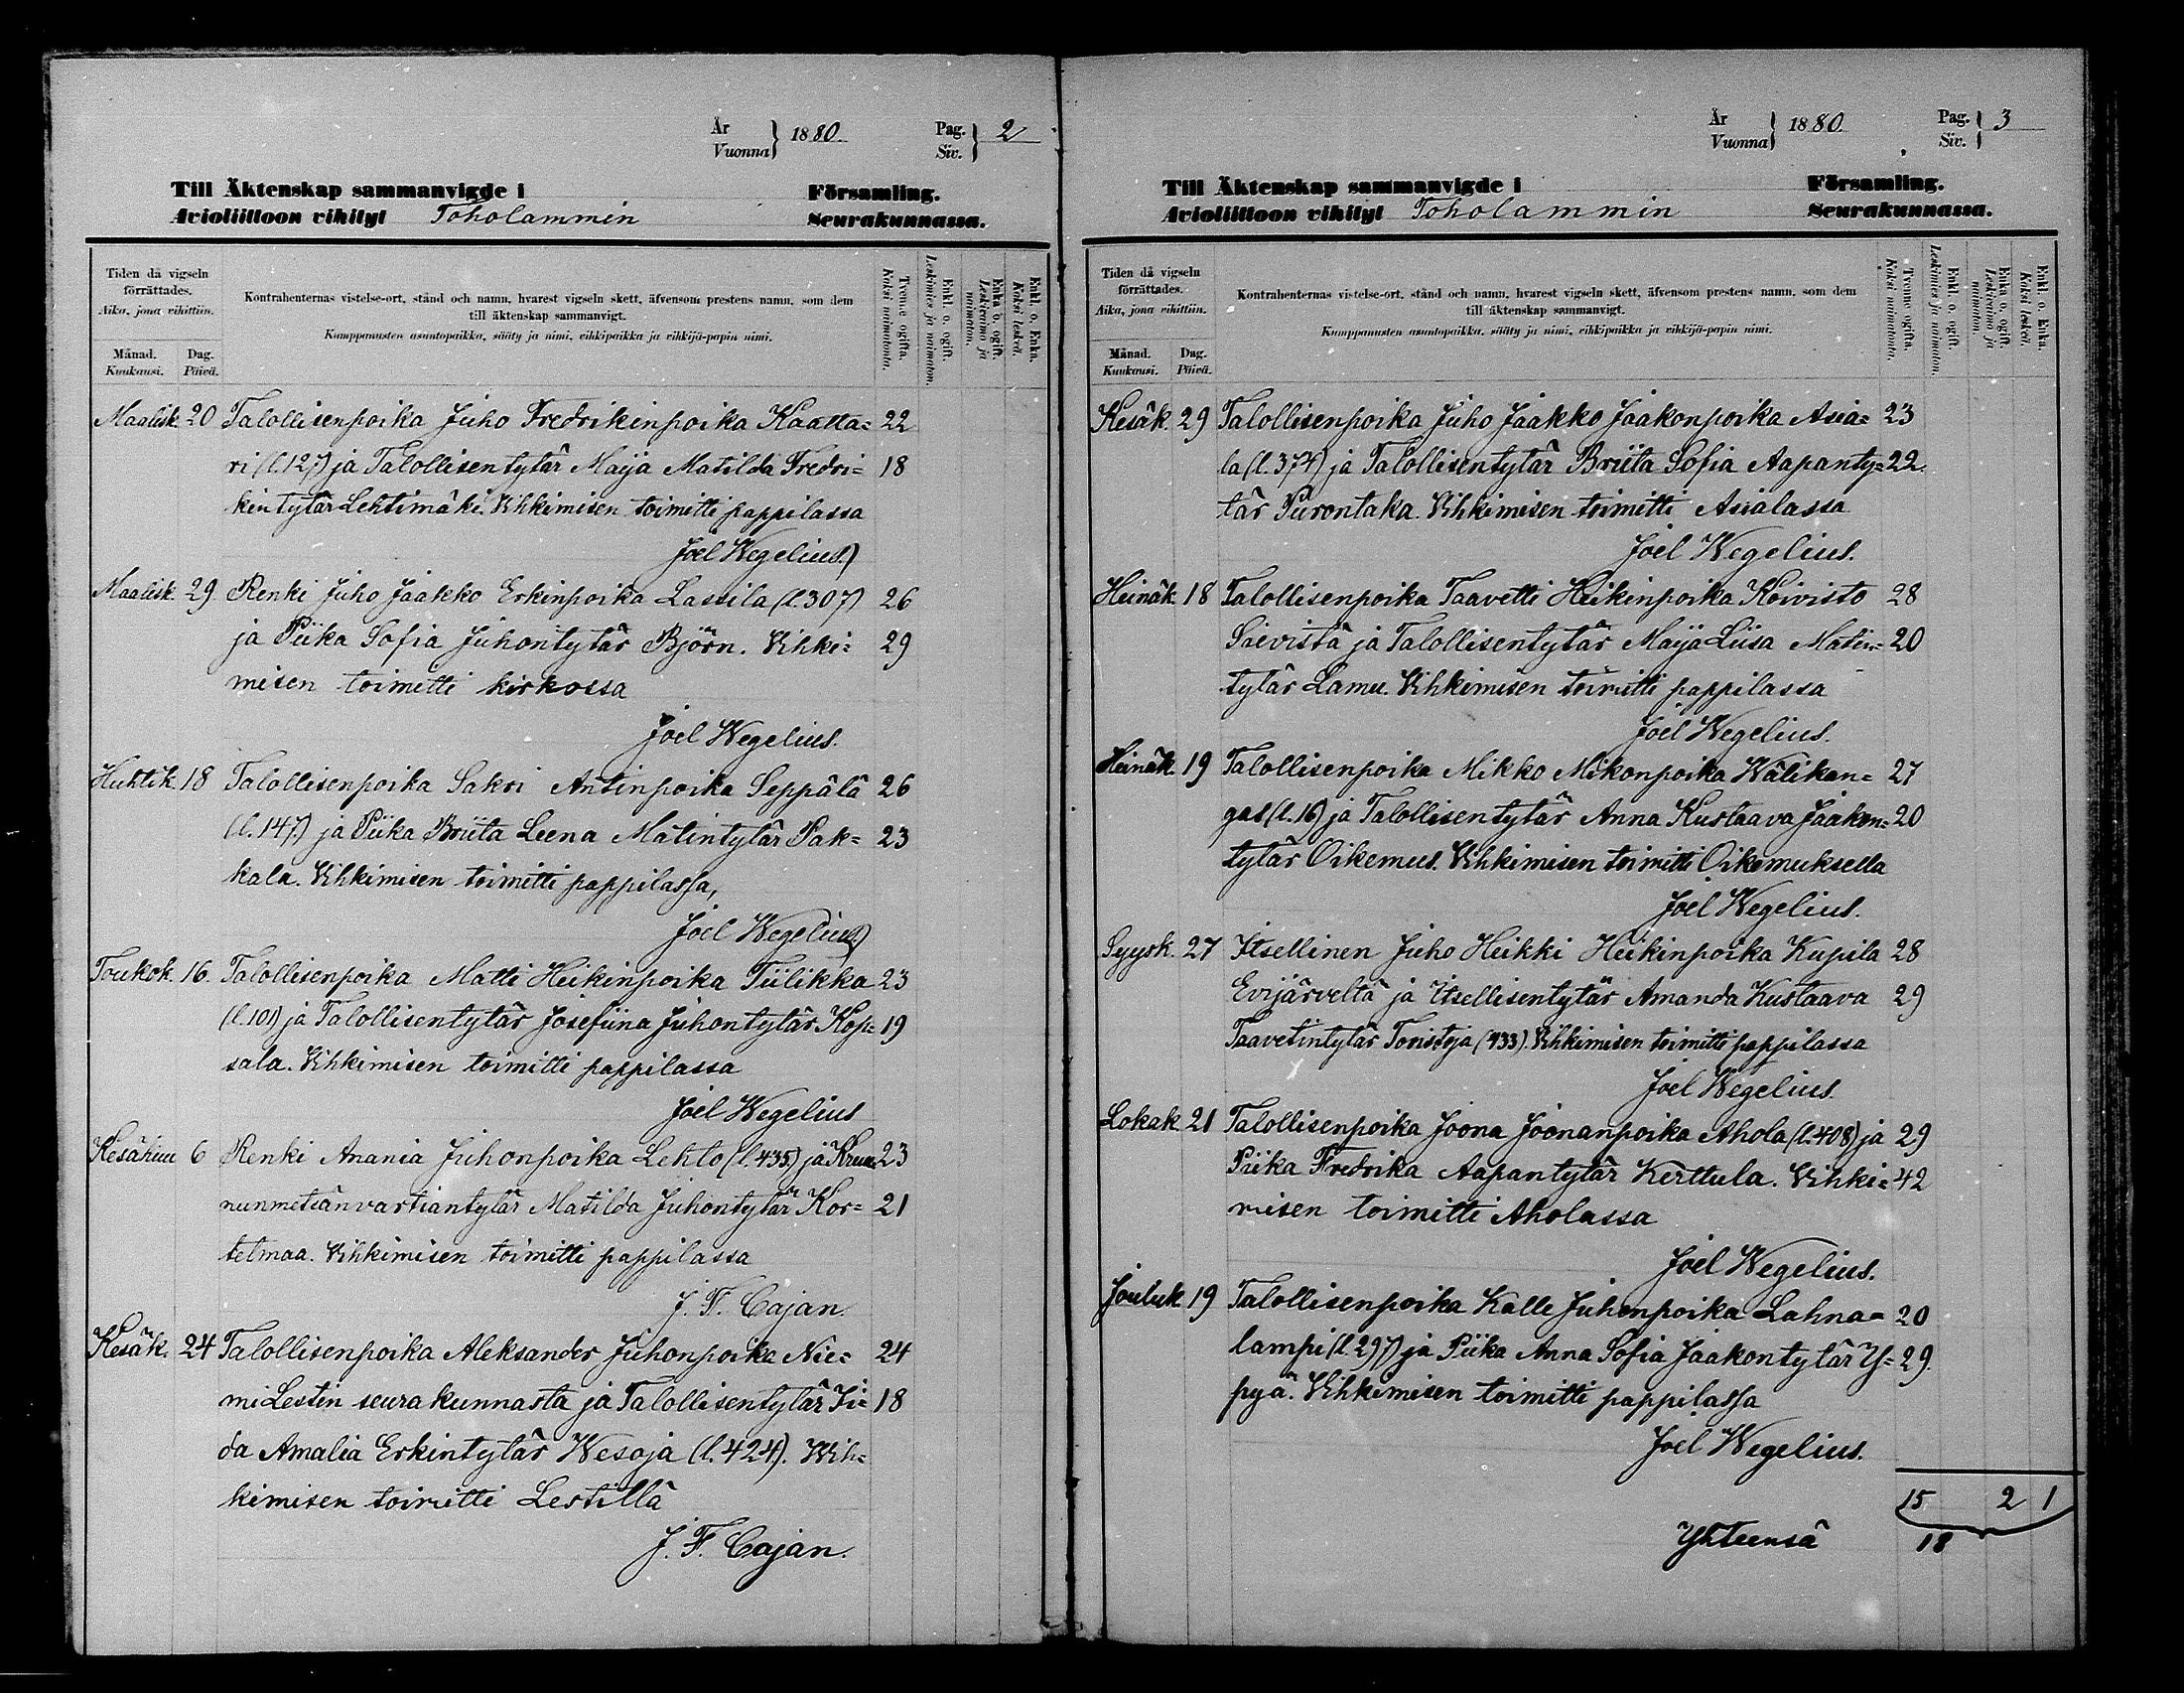 År
Vuonna } 1880.
Pag.
Siv. } 2
Till Äktenskap sammanvigde i Församling.
Avioliittoon vihityt Toholammin Seurakunnassa.
Tiden då vigseln förrättades.
Aika, jona vihittiin.
Månad.
Kuukausi.
Dag.
Päivä.
Kontrahenternas vistelse-ort, stånd och namn, hvarest vigseln skett, äfvensom prestens namn, som dem
till äktenskap sammanvigt.
Kumppanusten asuntopaikka, sääty ja nimi, vihkipaikka ja vihkijä-papin nimi.
Tvenne ogifta.
Kaksi naimatonta.
Enkl. o. ogift.
Leskimies ja naimaton.
Enka o. ogift.
Leskivaimo ja naimaton.
Enkl. o. Enka.
Kaksi leskeä.
Maalisk. 20 Talollisenpoika Juho Fredrikinpoika Kaatta= 22
ri (l.127) ja Talollisentytär Maija Matilda Fredri= 18
kintytär Lehtimäki. Vihkimisen toimitti pappilassa
Joel Wegelius.)
Maalisk. 29 Renki Juho Jaakko Erkinpoika Lassila (l.307) 26
ja Piika Sofia Juhontytär Björn. Vihki= 29
misen toimitti kirkossa
Joel Wegelius.
Huhtik. 18 Talollisenpoika Sakri Antinpoika Seppälä 26
(l.147.) ja Piika Briita Leena Matintytär Pak= 23
kala. Vihkimisen toimitti pappilassa,
Joel Wegelius)
Toukok. 16. Talollisenpoika Matti Heikinpoika Tiilikka 23
(l.101) ja Talollisentytär Josefiina Juhontytär Kop= 19
sala. Vihkimisen toimitti pappilassa
Joel Wegelius
Kesäkuu 6 Renki Anania Juhonpoika Lehto (l.435.) ja Kruu= 23
nunmetsänvartiantytär Matilda Juhontytär Kor= 21
telmaa. Vihkimisen toimitti pappilassa
J. F. Cajan.
Kesäk. 24 Talollisenpoika Aleksander Juhonpoika Nie= 24
mi Lestin seurakunnasta ja Talollisentytär Ii= 18
da Amalia Erkintytär Wesoja (l.424). Wih=
kimisen toimitti Lestillä
J. F. Cajan.
År
Vuonna } 1880.
Pag.
Siv. } 3
Till Äktenskap sammanvigde i Församling.
Avioliittoon vihityt Toholammin Seurakunnassa.
Tiden då vigseln förrättades.
Aika, jona vihittiin.
Månad.
Kuukausi.
Dag.
Päivä.
Kontrahenternas vistelse-ort, stånd och namn, hvarest vigseln skett, äfvensom prestens namn, som dem
till äktenskap sammanvigt.
Kumppanusten asuntopaikka, sääty ja nimi, vihkipaikka ja vihkijä-papin nimi.
Tvenne ogifta.
Kaksi naimatonta.
Enkl. o. ogift.
Leskimies ja naimaton.
Enka o. ogift.
Leskivaimo ja naimaton.
Enkl. o. Enka.
Kaksi leskeä.
Kesäk. 29 Talollisenpoika Juho Jaakko Jaakonpoika Asia= 23
la (l.374) ja Talollisentytär Briita Sofia Aapanty= 22.
tär Purontaka. Vihkimisen toimitti Asialassa
Joel Wegelius.
Heinäk. 18 Talollisenpoika Taavetti Heikinpoika Koivisto 28
Sievistä ja Talollisentytär Maija Liisa Matin= 20
tytär Lamu. Vihkimisen toimitti pappilassa
Joel Wegelius.
Heinäk. 19 Talollisenpoika Mikko Mikonpoika Wälikan= 27
gas (l.16) ja Talollisentytär Anna Kustaava Jaakon= 20
tytär Oikemus. Vihkimisen toimitti Oikemuksella
Joel Wegelius.
Syysk. 27 Itsellinen Juho Heikki Heikinpoika Kupila 28
Evijärveltä ja Itsellisentytär Amanda Kustaava 29
Taavetintytär Toristoja (433). Vihkimisen toimitti pappilassa
Joel Wegelius.
Lokak. 21 Talollisenpoika Joona Joonanpoika Ahola (l.408) ja 29
Piika Fredrika Aapantytär Kerttula. Vihki= 42
misen toimitti Aholassa
Joel Wegelius.
Jouluk 19 Talollisenpoika Kalle Juhonpoika Lahna= 20
lampi (l.297) ja Piika Anna Sofia Jaakontytär Y= 29.
pyä. Vihkimisen toimitti pappilassa
Joel Wegelius.
15 2 1
Yhteensä 18